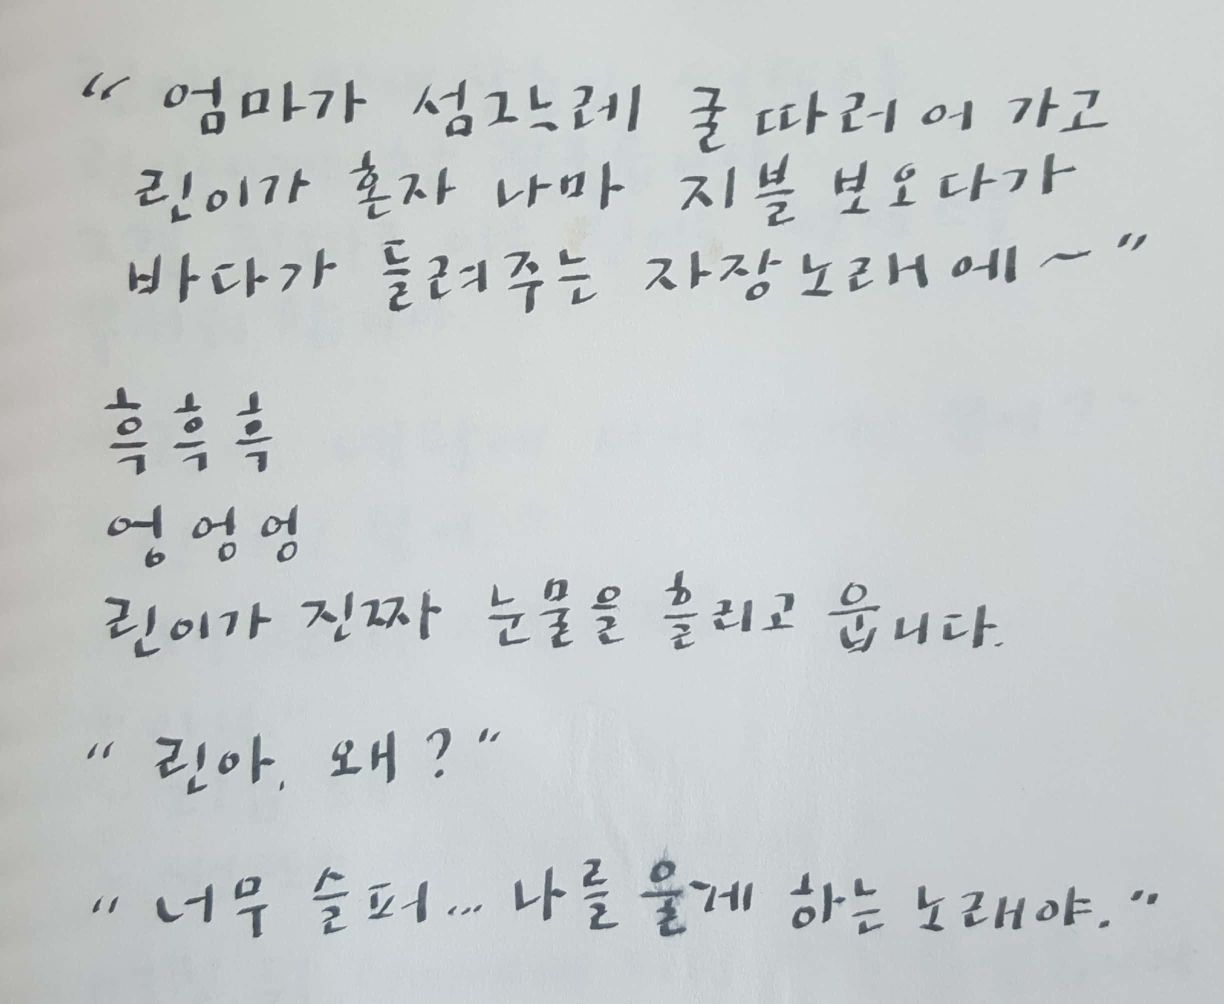 “ 엄마가 섬그느레 굴 따러어 가고
린이가 혼자 나마 지블 보오다가
바다가 들려주는 자장노래에~ ”
흑흑흑
엉엉엉
린이가 진짜 눈물을 흘리고 웁니다.
“ 린아, 왜? ”
“ 너무 슬퍼... 나를 울게 하는 노래야. ”